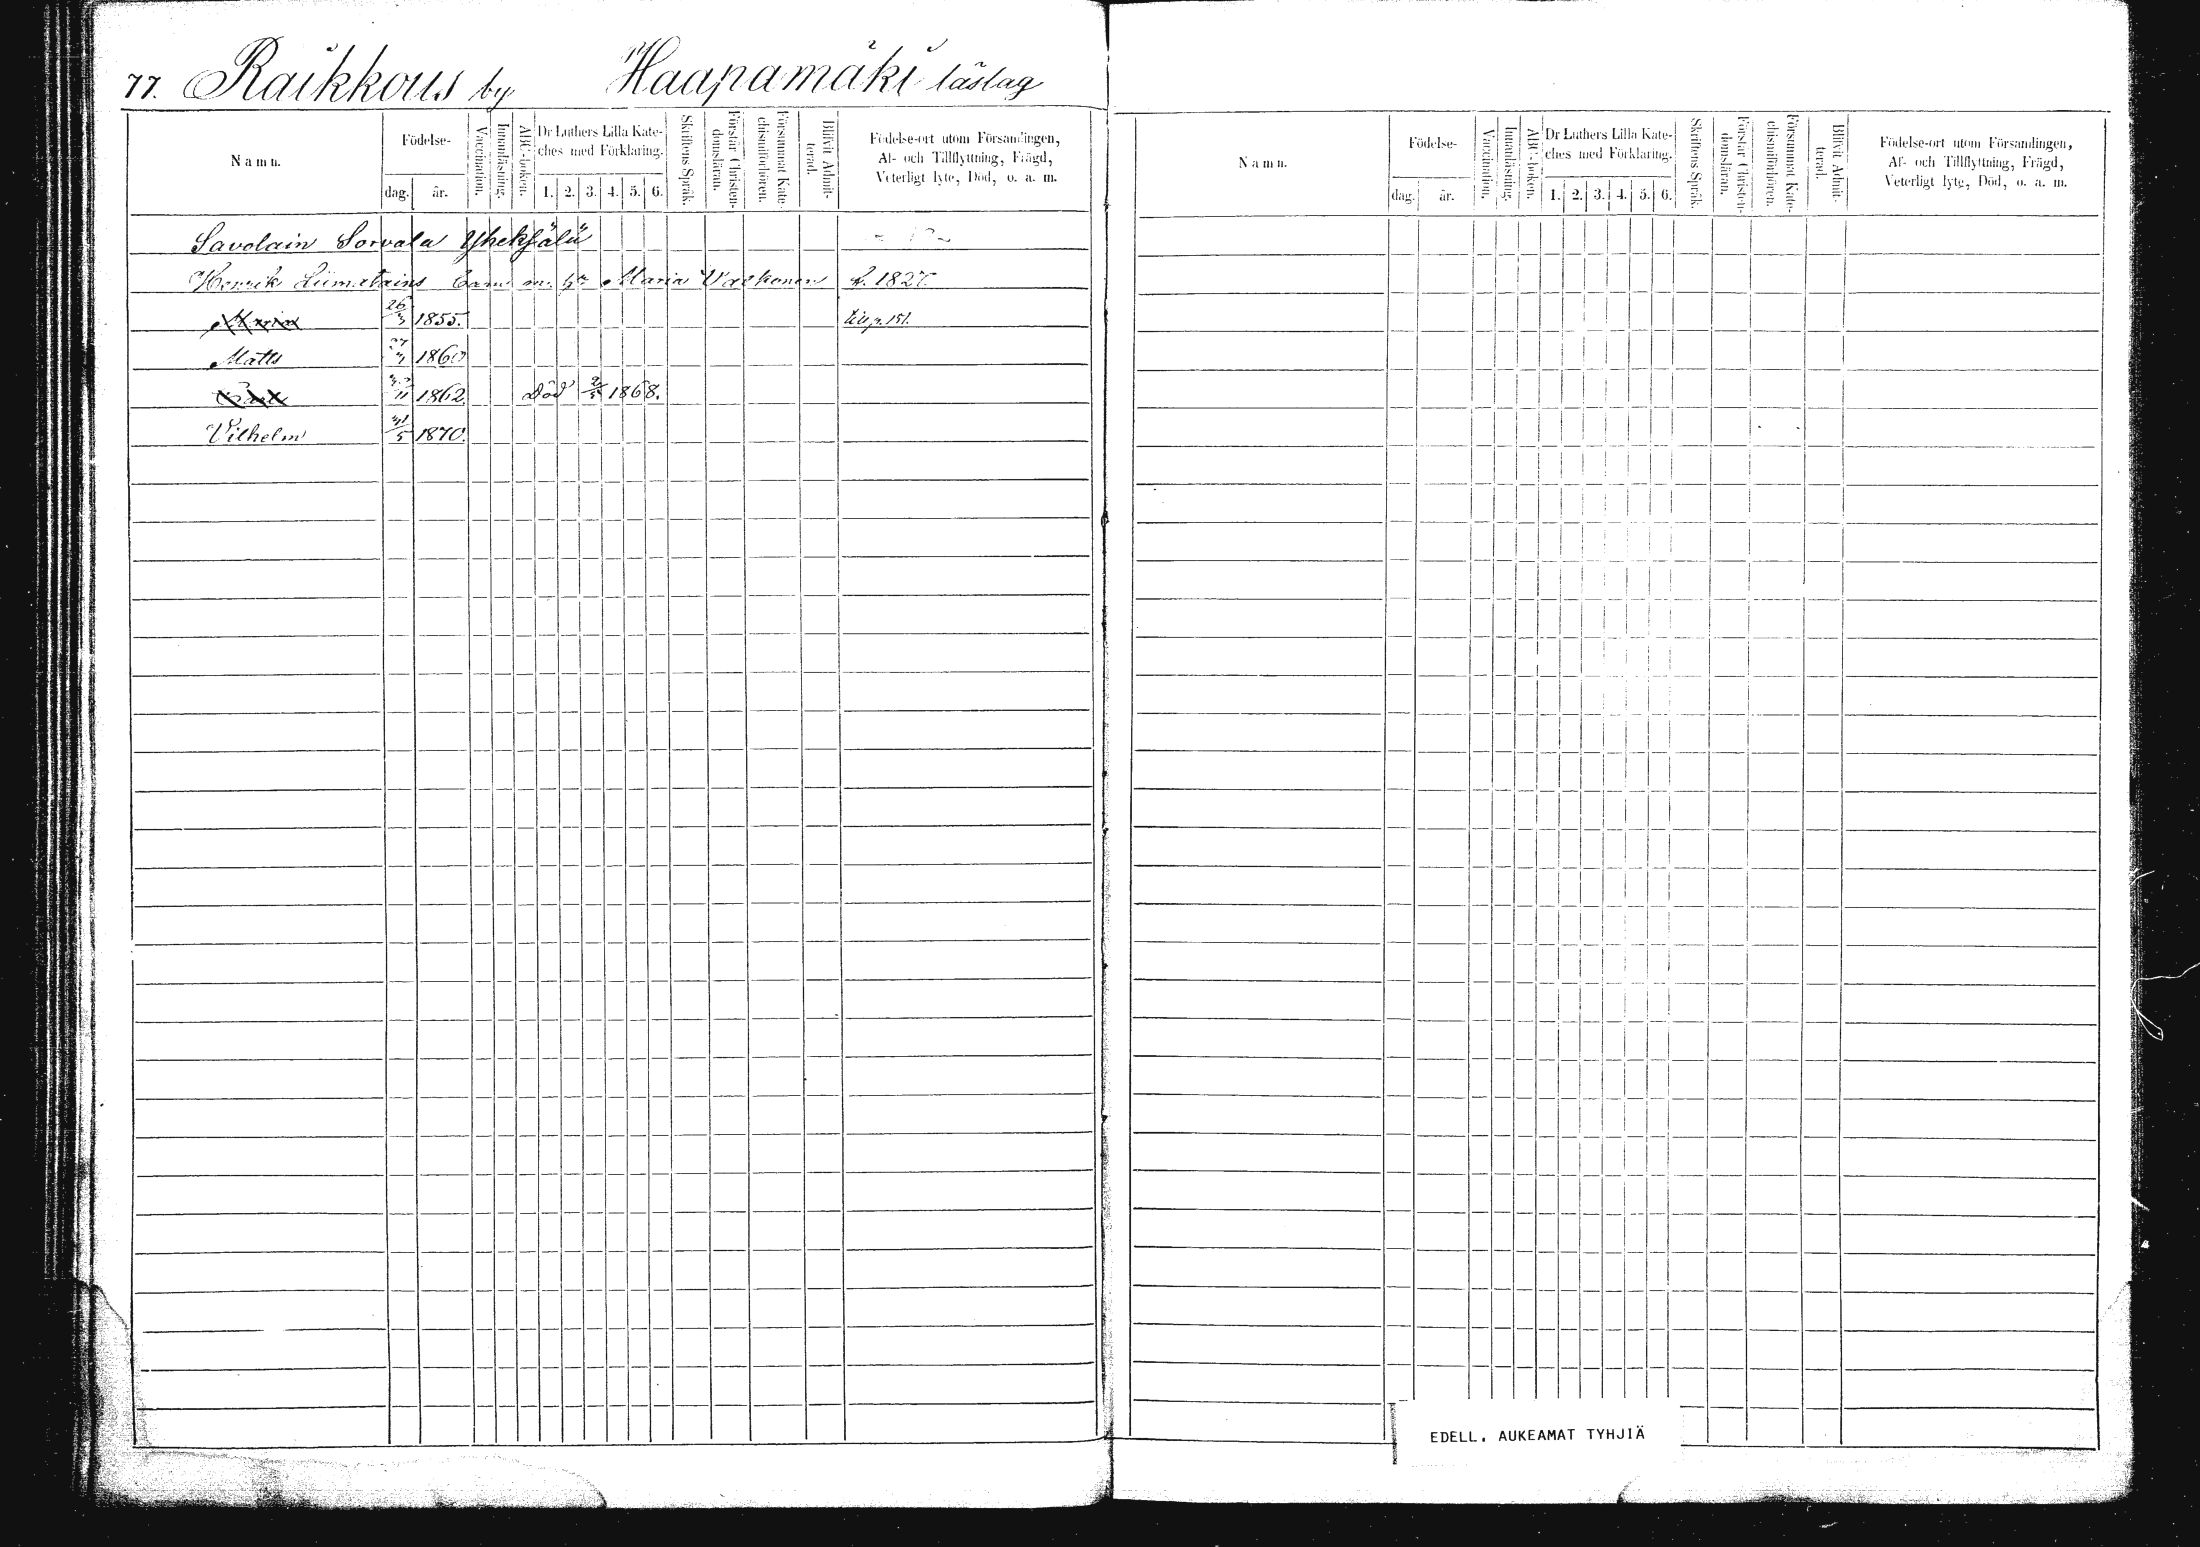 77. Raikkous by Haapamäki läslag
Namn.
Födelse-
dag. år.
Vaccination.
Innanläsning.
ABC-boken.
Dr Luthers Lilla Kate-
ches med Förklaring.
1. 2. 3. 4. 5. 6.
Skriftens Språk.
Förstår Christen-
domsläran.
Försummat Kate-
chismiförhören.
Blifvit Admit-
terad.
Födelse-ort utom Församlingen,
Af- och Tillflyttning, Frägd,
Veterligt lyte, Död, o. a. m.
Savolain Sorvala
Henrik Liimatains Barn m. Maria f. 1827.
26/3 1855. till p. 151.
Matts 1860
1862. Död 2/5 1868.
Vilhelm 31/5 1870.
Namn.
Födelse-
dag. år.
Vaccination.
Innanläsning.
ABC-boken.
Dr Luthers Lilla Kate-
ches med Förklaring.
1. 2. 3. 4. 5. 6.
Skriftens Språk.
Förstår Christen-
domsläran.
Försummat Kate-
chismiförhören.
Blifvit Admit-
terad.
Födelse-ort utom Församlingen,
Af- och Tillflyttning, Frägd,
Veterligt lyte, Död, o. a. m.
EDELL. AUKEAMAT TYHJIÄ